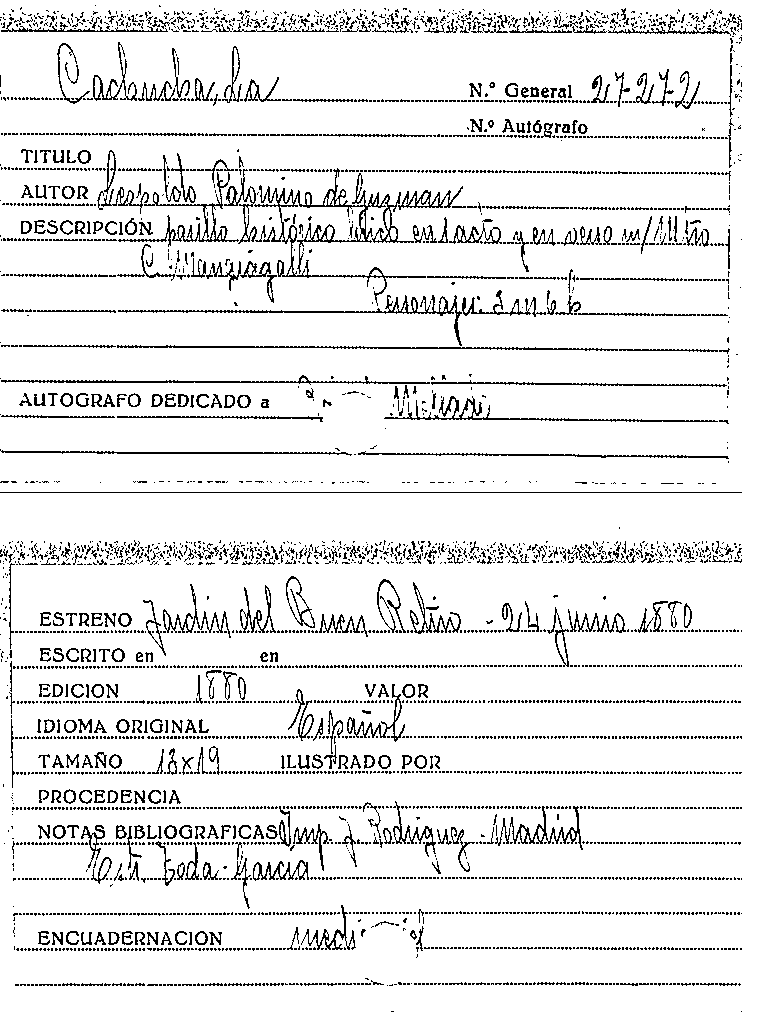 Cachucha, La
N.º General 27-272
N.º Autógrafo
TITULO
AUTOR Leopoldo Palomino de Guzman
DESCRIPCIÓN pasillo histórico lírico en 1 acto y en verso m/ Mtro
C. Mangiagalli
Personajes: 3 m 6 h
AUTOGRAFO DEDICADO a
ESTRENO Jardin del Buen Retiro - 24 junio 1880
ESCRITO en en
EDICION 1880 VALOR
IDIOMA ORIGINAL Español
TAMAÑO 13x19 ILUSTRADO POR
PROCEDENCIA
NOTAS BIBLIOGRAFICAS Imp. J. Rodriguez - Madrid
Estr. Toda-Garcia
ENCUADERNACION